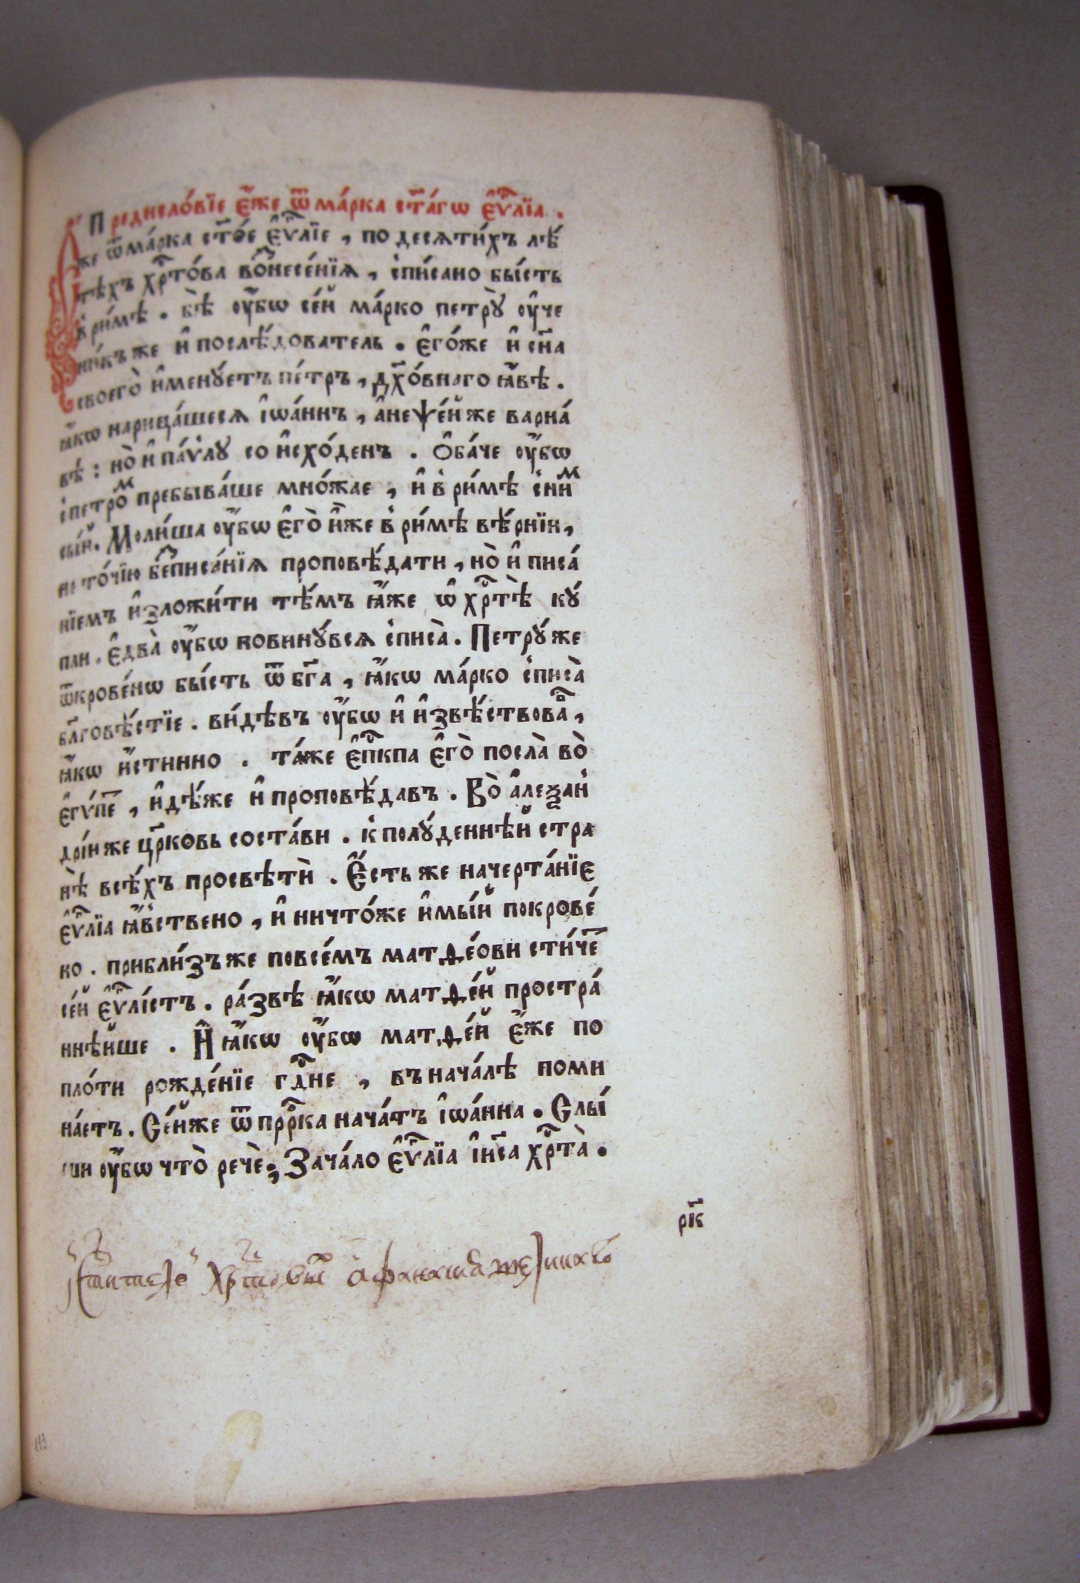 Предисло́вїе є҆́же ѿ ма́рка ст҃а́гѡ є҆ѵⷢ҇лїа .
Є҆́же ѿ ма́рка ст҃о́е є҆ѵⷢ҇лїе , по десѧти́хъ лѣ́
тѣхъ хрⷭ҇то́ва воⷥнесе́нїѧ , с̾пи́сано бы́сть
в̾ ри́мѣ . бѣ̀ ᲂу҆́бѡ се́й ма́рко петрꙋ̀ ᲂу҆че
ни́къ же и҆ послѣ́дователь . є҆го́же и҆ сн҃а
своего̀ и҆менꙋ́етъ пе́тръ , дх҃о́внаго ꙗ҆́вѣ .
ꙗ҆́кѡ нарица́шесѧ і҆ѡа́ннъ , а҆неѱе́й же варна́
вѣ : но̀ и҆ па́ѵлꙋ со и҆схо́денъ . Ѻ҆ба́че ᲂу҆́бѡ
с̾ петро́ⷨ пребыва́ше мно́жае , и҆ в̾ ри́мѣ с̾ ни́ⷨ
сы́й . Моли́ша ᲂу҆́бѡ є҆го̀ и҆̀же в̾ ри́мѣ вѣ́рнїи ,
не то́чїю беⷥписа́нїѧ проповѣ́дати , но̀ и҆ писа́
нїемъ и҆зложи́ти тѣ́мъ ꙗ҆́же ѡ҆ хрⷭ҇тѣ̀ кꙋ́
пли . є҆два̀ ᲂу҆́бѡ повинꙋ́всѧ с̾писа̀ . Петрꙋ́ же
ѿкрове́нѡ бы́сть ѿ бг҃а , ꙗ҆́кѡ ма́рко с̾писа̀
бл҃говѣ́стїе . ви́дѣвъ ᲂу҆́бѡ и҆ и҆звѣ́ствоваⷡ ,
ꙗ҆́кѡ и҆́стинно . та́же є҆пⷭ҇кпа є҆го̀ посла̀ во̀
є҆гѵ́пеⷮ , и҆дѣ́же и҆ проповѣ́давъ . Во̀ а҆леѯан̾
дрі́и же цр҃ковь соста́ви . к̾ полꙋ́деннѣй стра
нѣ̀ всѣ́хъ просвѣтѝ . Є҆́сть же начерта́нїе
є҆ѵⷢ҇лїа ꙗ҆́вственно , и҆ ничто́же и҆мы́й покрове́
но . прибли́зъ же повсе́мъ матѳе́ови сти́чеⷭ
се́й є҆ѵⷢ҇лі́стъ . ра́звѣ ꙗ҆́кѡ матѳе́й простра́
ннѣйше . И҆̀ ꙗ҆́кѡ ᲂу҆́бѡ матѳе́й є҆́же по
пло́ти рожде́нїе гдⷭ҇не , въ нача́лѣ поми
на́етъ . Се́й же ѿ прⷪ҇рка нача́тъ і҆ѡа́нна . Слы́
ши ᲂу҆́бѡ что̀ речѐ ; Зача́ло є҆ѵⷢ҇лїа і҆и҃са хрⷭ҇та̀ .
рк҃
113